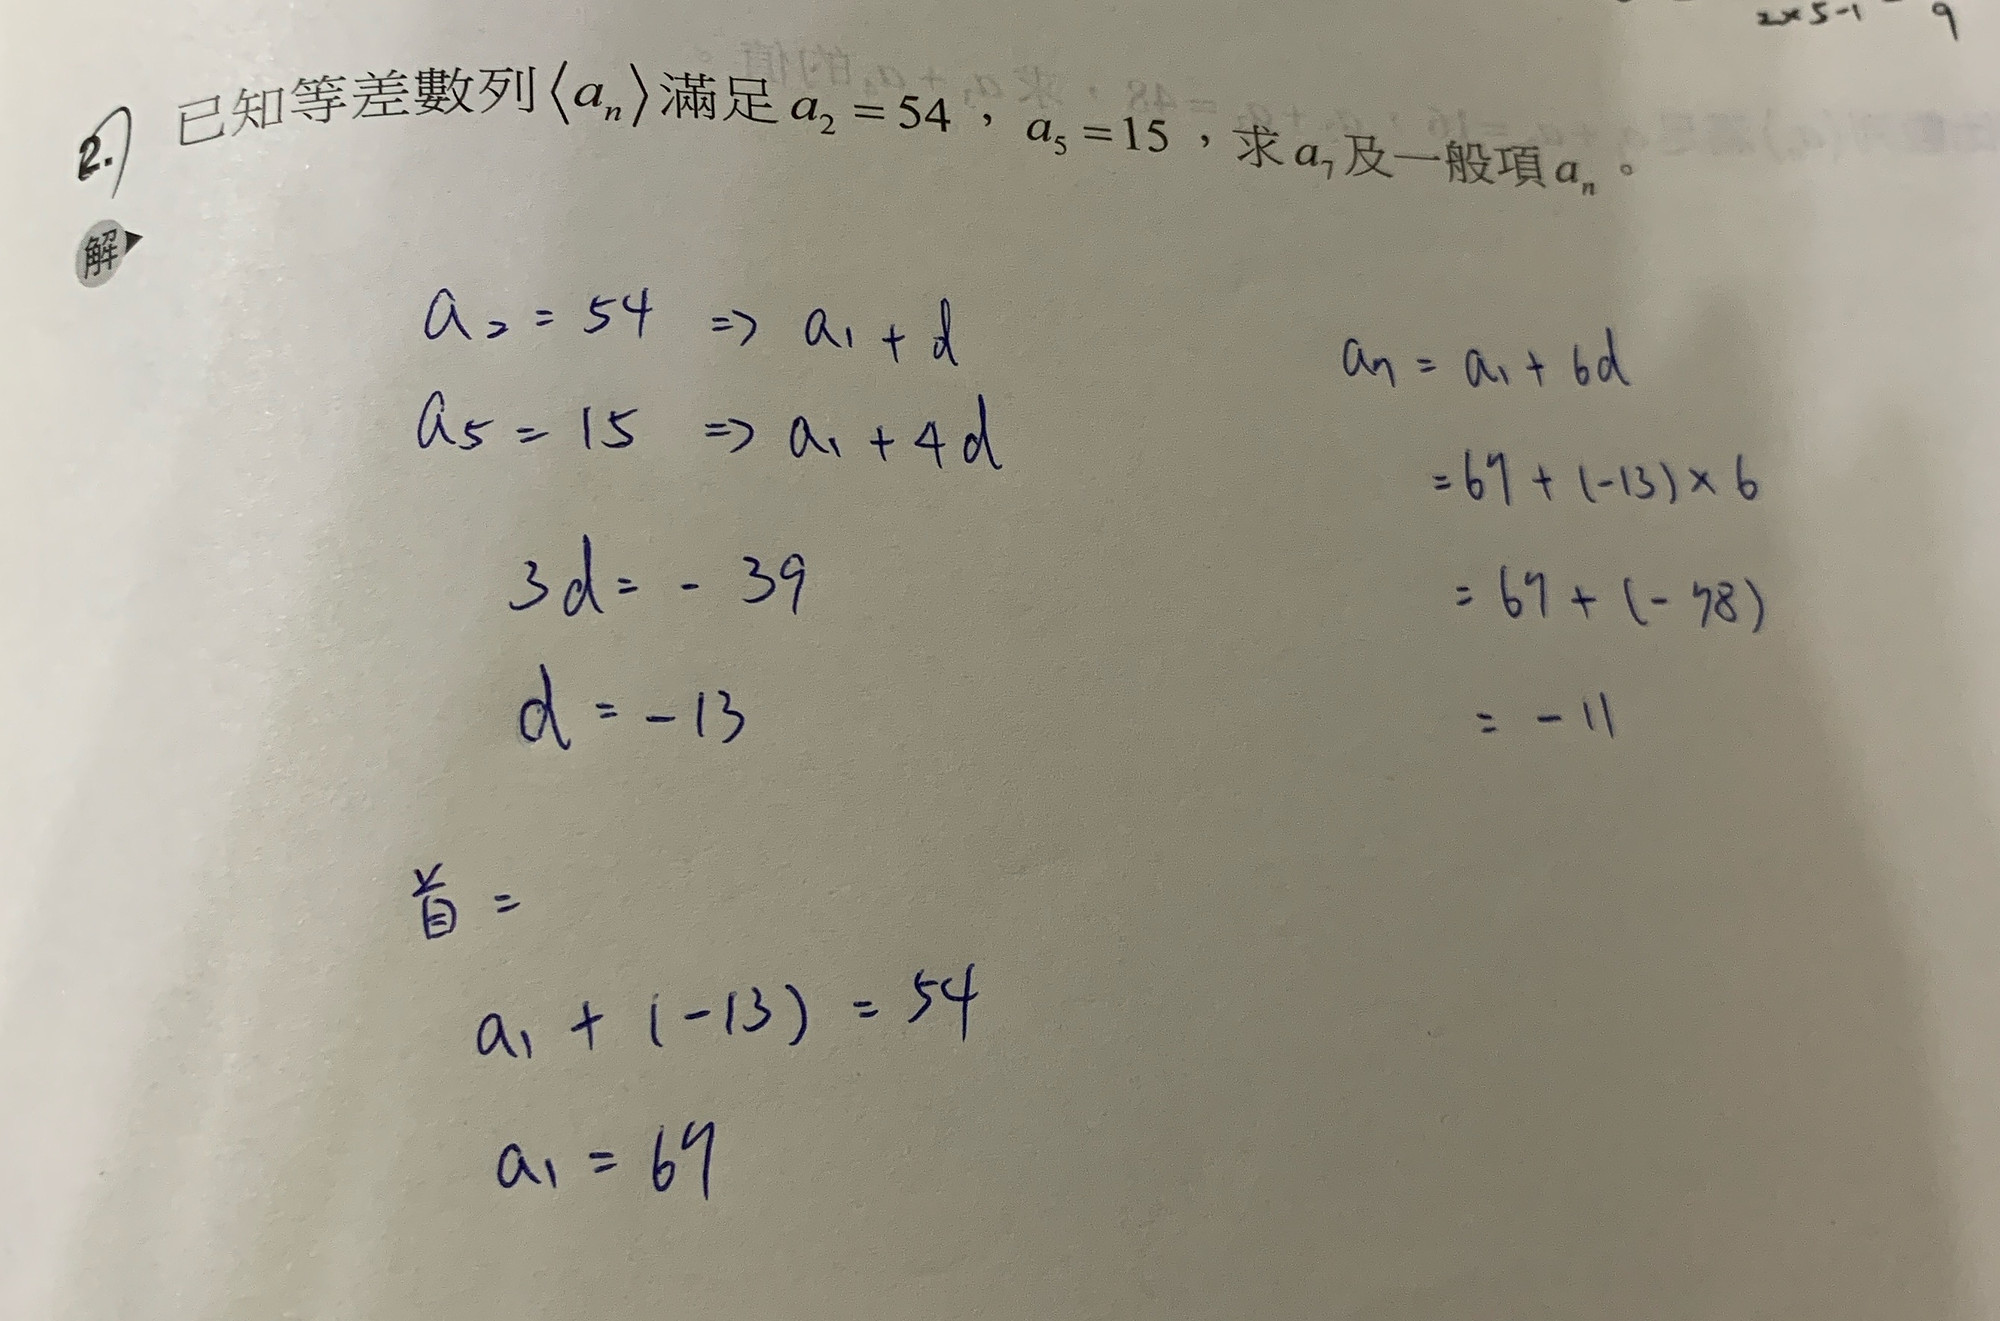 2×5-1 9
2. 已知等差數列⟨aₙ⟩滿足 a₂ = 54，a₅ = 15，求 a₇ 及一般項 aₙ。
解
a₂ = 54 => a₁ + d
a₅ = 15 => a₁ + 4d
3d = - 39
d = -13
首 =
a₁ + (-13) = 54
a₁ = 67
a₇ = a₁ + 6d
= 67 + (-13) × 6
= 67 + (-78)
= -11